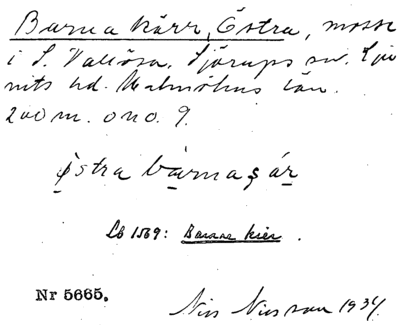 Barna kärr, Östra, mosse
i S. Vallösa, Sjörups sn. Lju
nits hd. Malmöhus län.
200 m. ono. 9.
östra bårnaşár
Lb 1569: Barnae kier.
Nr 5665.
Nils Nilsson 1934